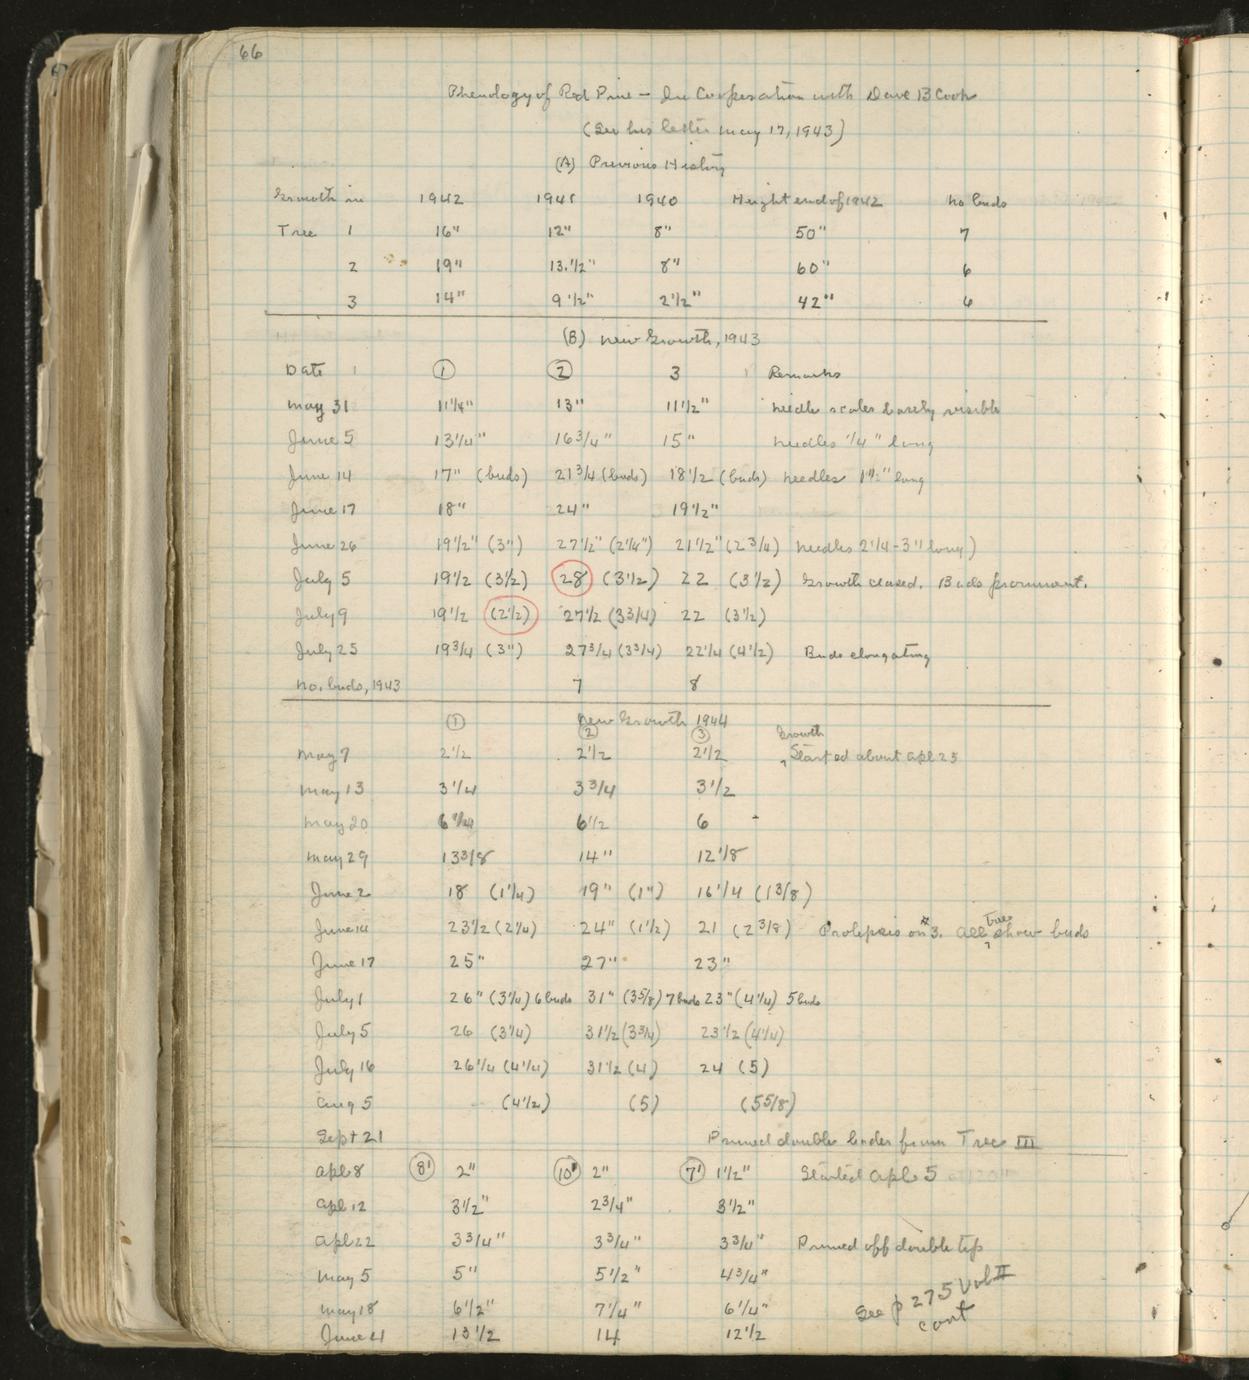 66
Phenology of Red Pine - In Cooperation with Dave B Cook
(See his letter May 17, 1943)
(A) Previous History
Growth in 1942 1941 1940 Height end of 1942 No buds
Tree 1 16" 12" 8" 50" 7
2 19" 13 1/2" 8" 60" 6
3 14" 9 1/2" 2 1/2" 42" 6
(B) New Growth, 1943
Date 1 2 3 Remarks
May 31 11 1/4" 13" 11 1/2" Needle scales barely visible
June 5 13 1/4" 16 3/4" 15" Needles 1/4" long
June 14 17" (buds) 21 3/4 (buds) 18 1/2 (buds) Needles long
June 17 18" 24" 19 1/2"
June 26 19 1/2" (3") 27 1/2" (2 1/4") 21 1/2" (2 3/4) Needles 2 1/4 - 3" long)
July 5 19 1/2 (3 1/2) 28 (3 1/2) 22 (3 1/2) Growth ceased. Buds prominent.
July 9 19 1/2 (2 1/2) 27 1/2 (3 3/4) 22 (3 1/2)
July 25 19 3/4 (3") 27 3/4 (3 3/4) 22 1/4 (4 1/2) Buds elongating
No. buds, 1943 7 8
New Growth 1944
1 2 3 Growth
May 7 2 1/2 2 1/2 2 1/2 Started about Apl 25
May 13 3 1/4 3 3/4 3 1/2
May 20 6 1/4 6 1/2 6
May 29 13 3/8 14" 12 1/8
June 2 18 (1 1/4) 19" (1") 16 1/4 (1 3/8)
June 14 23 1/2 (2 1/4) 24" (1 1/2) 21 (2 3/8) Prolepsis on #3. All trees show buds
June 17 25" 27" 23"
July 1 26" (3 1/4) 6 buds 31" (3 5/8) 7 buds 23" (4 1/4) 5 buds
July 5 26 (3 1/4) 31 1/2 (3 3/4) 23 1/2 (4 1/4)
July 16 26 1/4 (4 1/4) 31 1/2 (4) 24 (5)
Aug 5 (4 1/2) (5) (5 5/8)
Sept 21 Pruned double leader from Tree III
Apl 8 8' 2" 10' 2" 7' 1 1/2" Started Apl 5
Apl 12 3 1/2" 2 3/4" 3 1/2"
Apl 22 3 3/4" 3 3/4" 3 3/4" Pruned off double top
May 5 5" 5 1/2" 4 3/4"
May 18 6 1/2" 7 1/4" 6 1/4"
June 4 13 1/2 14 12 1/2
See p 275 Vol II
cont